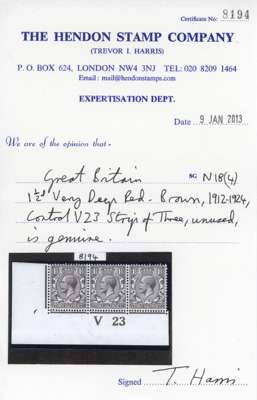 Certificate No: 8194
THE HENDON STAMP COMPANY
(TREVOR I. HARRIS)
P.O. BOX 624, LONDON NW4 3NJ TEL: 020 8209 1464
Email: mail@hendonstamps.com
EXPERTISATION DEPT.
Date 9 JAN 2013
We are of the opinion that:-
Great Britain SG N18(4)
1½d Very Deep Red-Brown, 1912-1924,
Control V23 Strip of Three, unused,
is genuine.
8194
V 23
Signed T. Harris